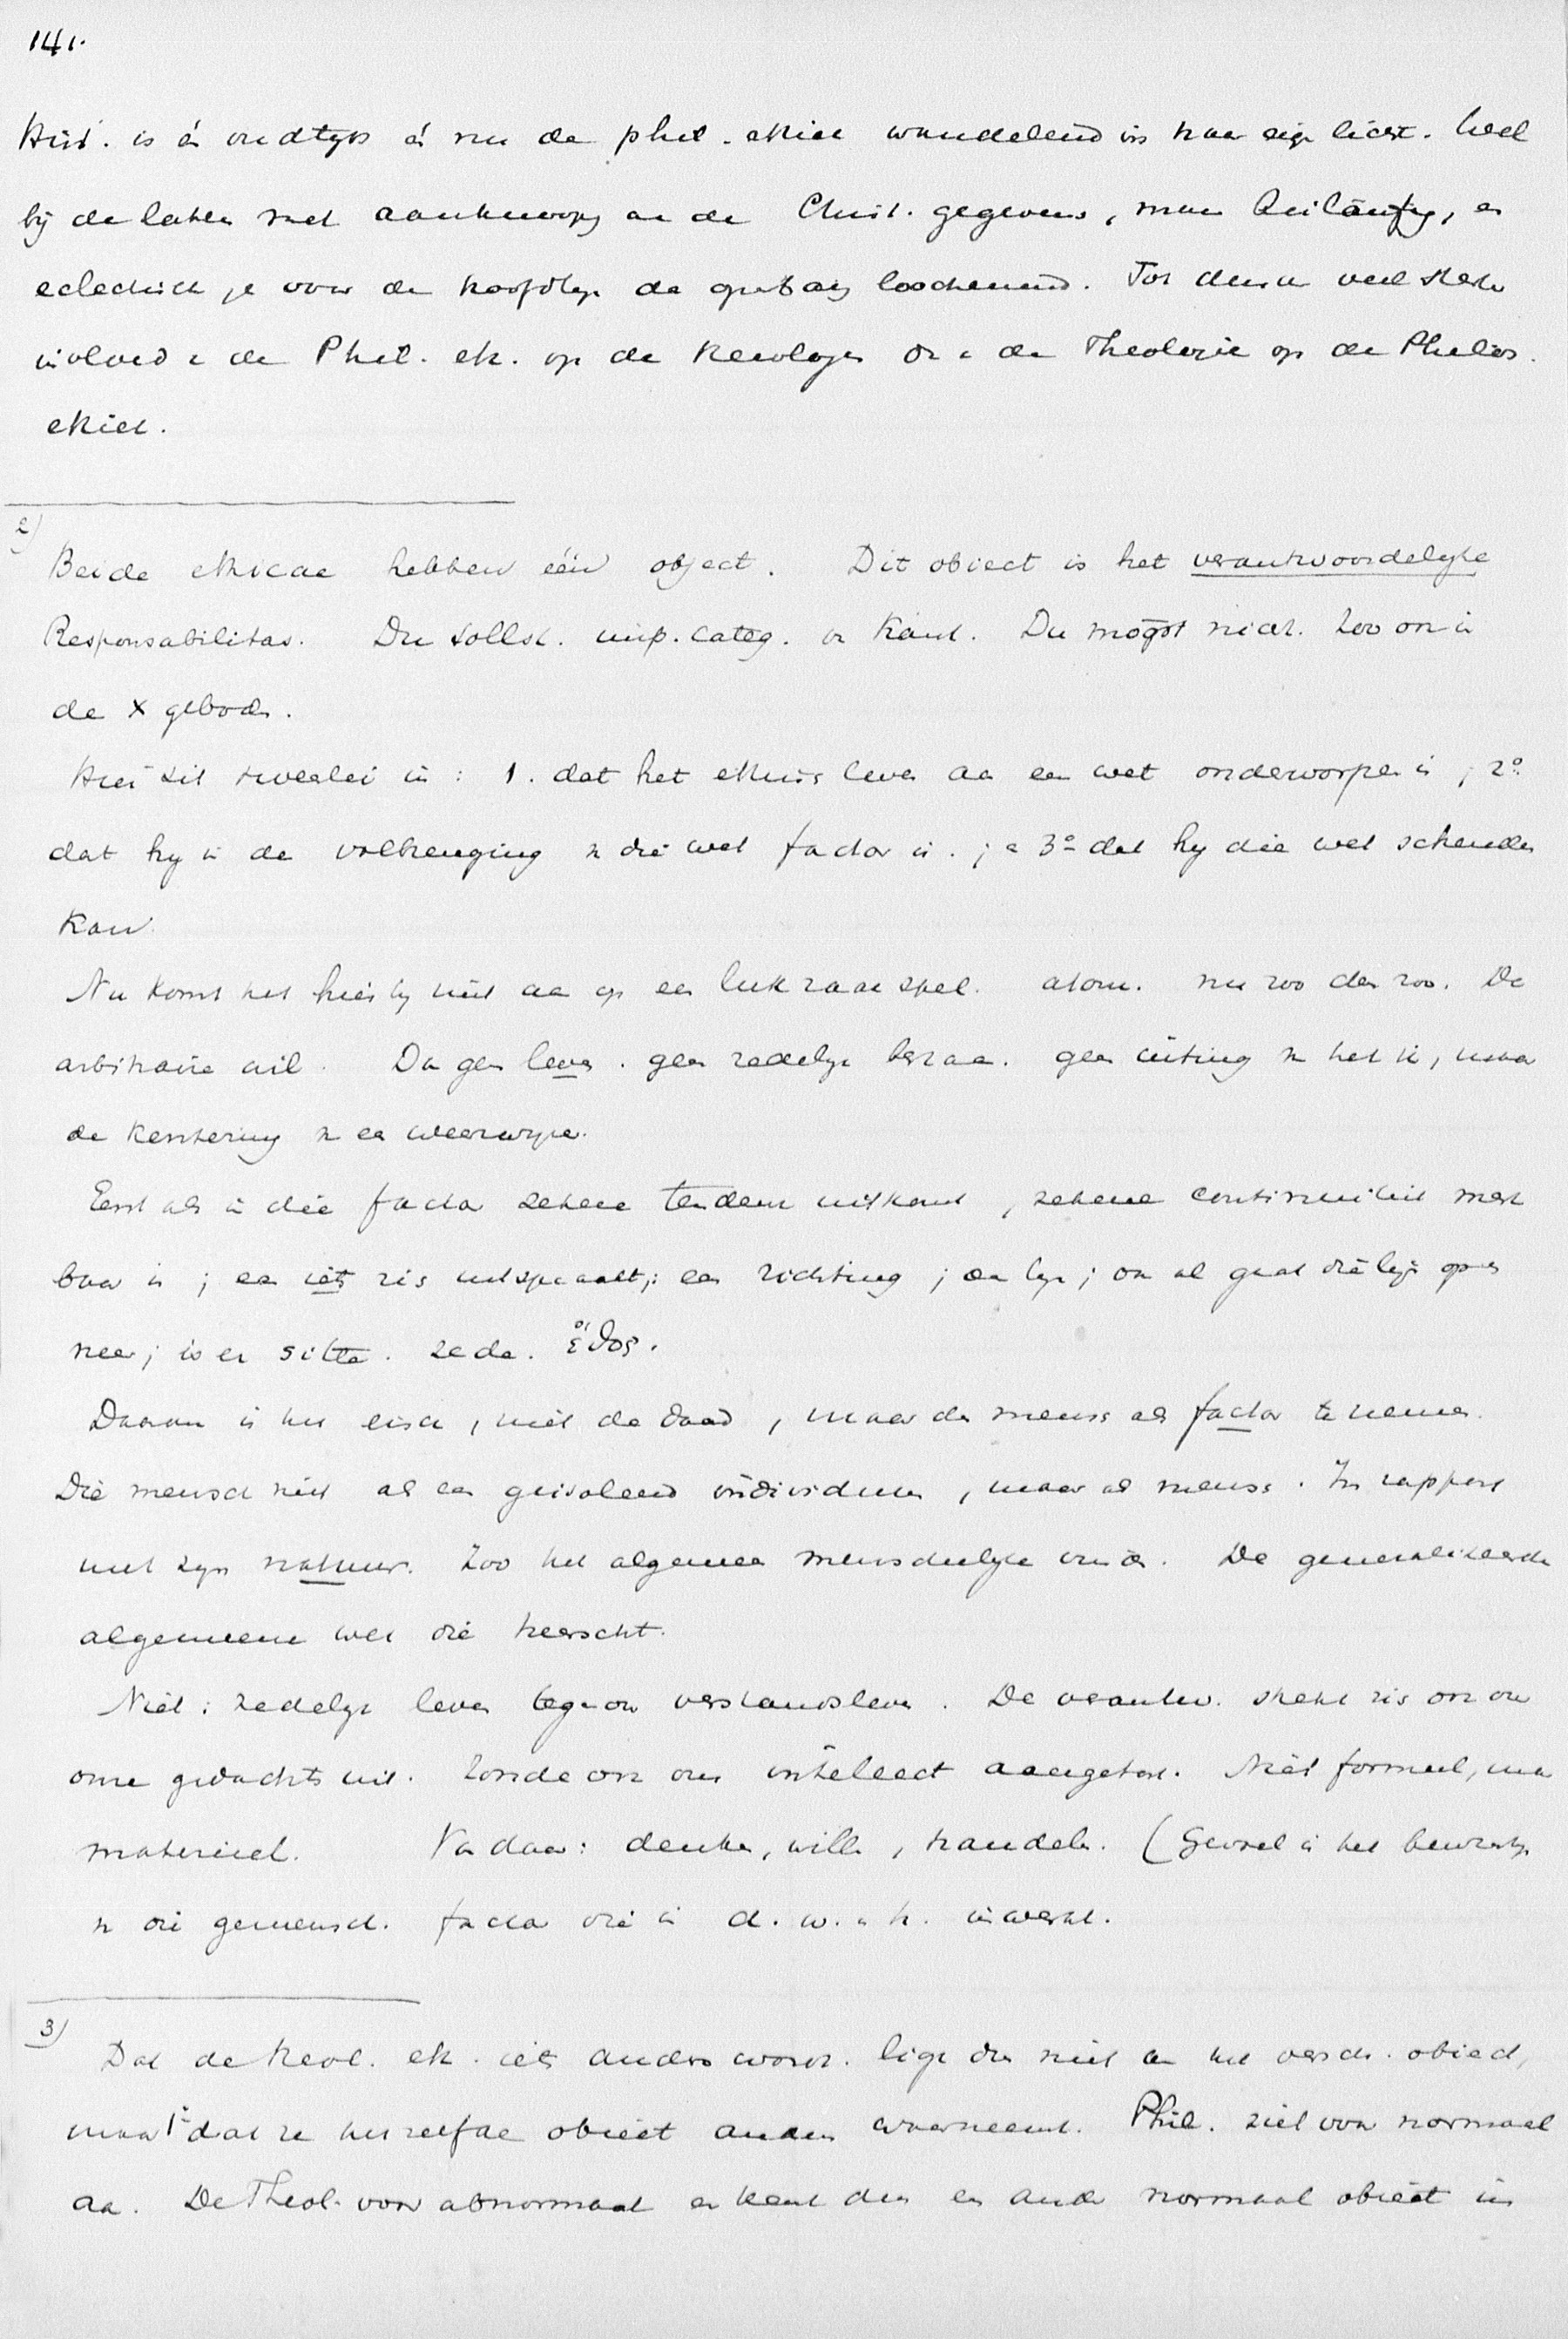 141.
Hist. is én oudtijds én nu de phil. ethiek wandelend in haar eige licht. Wel
bij de laatste met aanknoopg aa de Christ. gegevens, maar beiläufig, en
eclectisch je voor de hoofdlijn de openbarg loochenend. Tot deus u veel sterker
invloed v de Phil. eth. op de theologen dan v de Theologie op de Philos.
ethiek.
2)
Beide ethicae hebben één object. Dit obiect is het verantwoordelyke
Responsabilitas. Du sollst. imp. categ. v Kant. Du mögst nicht. Zoo ook in
de X gebode.
Hier zit tweeërlei in: 1. dat het ethisch leve aa een wet onderworpe is; 2º
dat hy in de volbrenging v die wet factor is; e 3º dat hy die wet schende
kan
Nu komt het hierby niet aa op een lukraak spel. atom. nu zoo dan zoo. De
arbitraire wil. Da gee leve. gee redelyk beraa. gee uiting v het ik, maar
de kentering v ee weerwype.
Eerst als i die factor zekere tendenz uitkomt, zekere continuiteit merk
baar is; ee iets zis uitspreekt; een richting; ee lyn; ook al gaat die lyn op e
neer; is er sitte. zede. ἔθος.
Daarom is het eisch, niet de daad, maar de mens als factor te neme.
Die mensch niet als ee geisoleerd individuu, maar als mens. In rapport
met zyn natuur. Zoo het algemee menschelyke vinde. De generaliseerde
algemeene wet die heerscht.
Niet: zedelyk leve tegeov verstandsleve. De verantw. strekt zis ook ov
onze gedachte uit. Zonde ook ons intelect aangetast. Niet formeel, maa
materieel. Va daar: denke, wille, handele. (Gevoel is het bewustz.
v die gemeensch. factor die i d. w. e h. inwerkt.
3)
Dat de theol. eth. iets anders wordt. ligt dus niet aa het versch. obiect,
maar 1º dat ze hetzelfde obiect anders waarneemt. Phil. ziet voor normaal
aa. De Theol. voor abnormaal e kent dus ee ander normaal obiect in